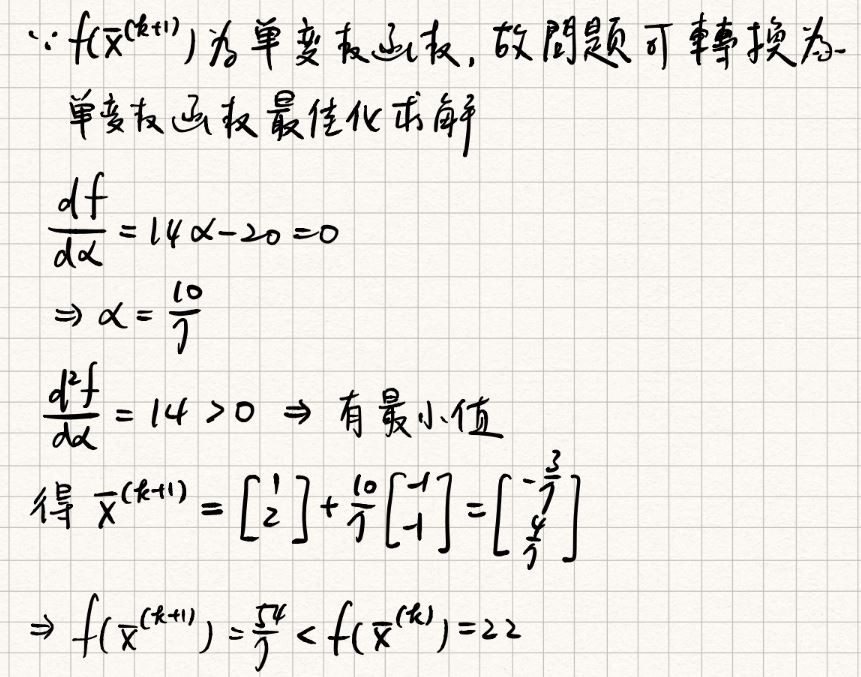 ∵ f(x̄^(k+1)) 為單變數函數, 故問題可轉換為
單變數函數最佳化求解
df/dα = 14α-20=0
⇒ α = 10/7
d²f/dα = 14 > 0 ⇒ 有最小值
得 x̄^(k+1) = [1 2] + 10/7 [-1 -1] = [-3/7 4/7]
⇒ f(x̄^(k+1)) = 54/7 < f(x̄^(k)) = 22